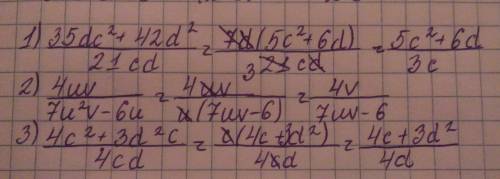 1) (35dc² + 42d²)/(21cd) = (7d(5c² + 6d))/(3 21cd) = (5c² + 6d)/(3c)
2) (4uv)/(7u²v - 6u) = (4uv)/(u(7uv - 6)) = (4v)/(7uv - 6)
3) (4c² + 3d²c)/(4cd) = (c(4c + 3d²))/(4cd) = (4c + 3d²)/(4d)